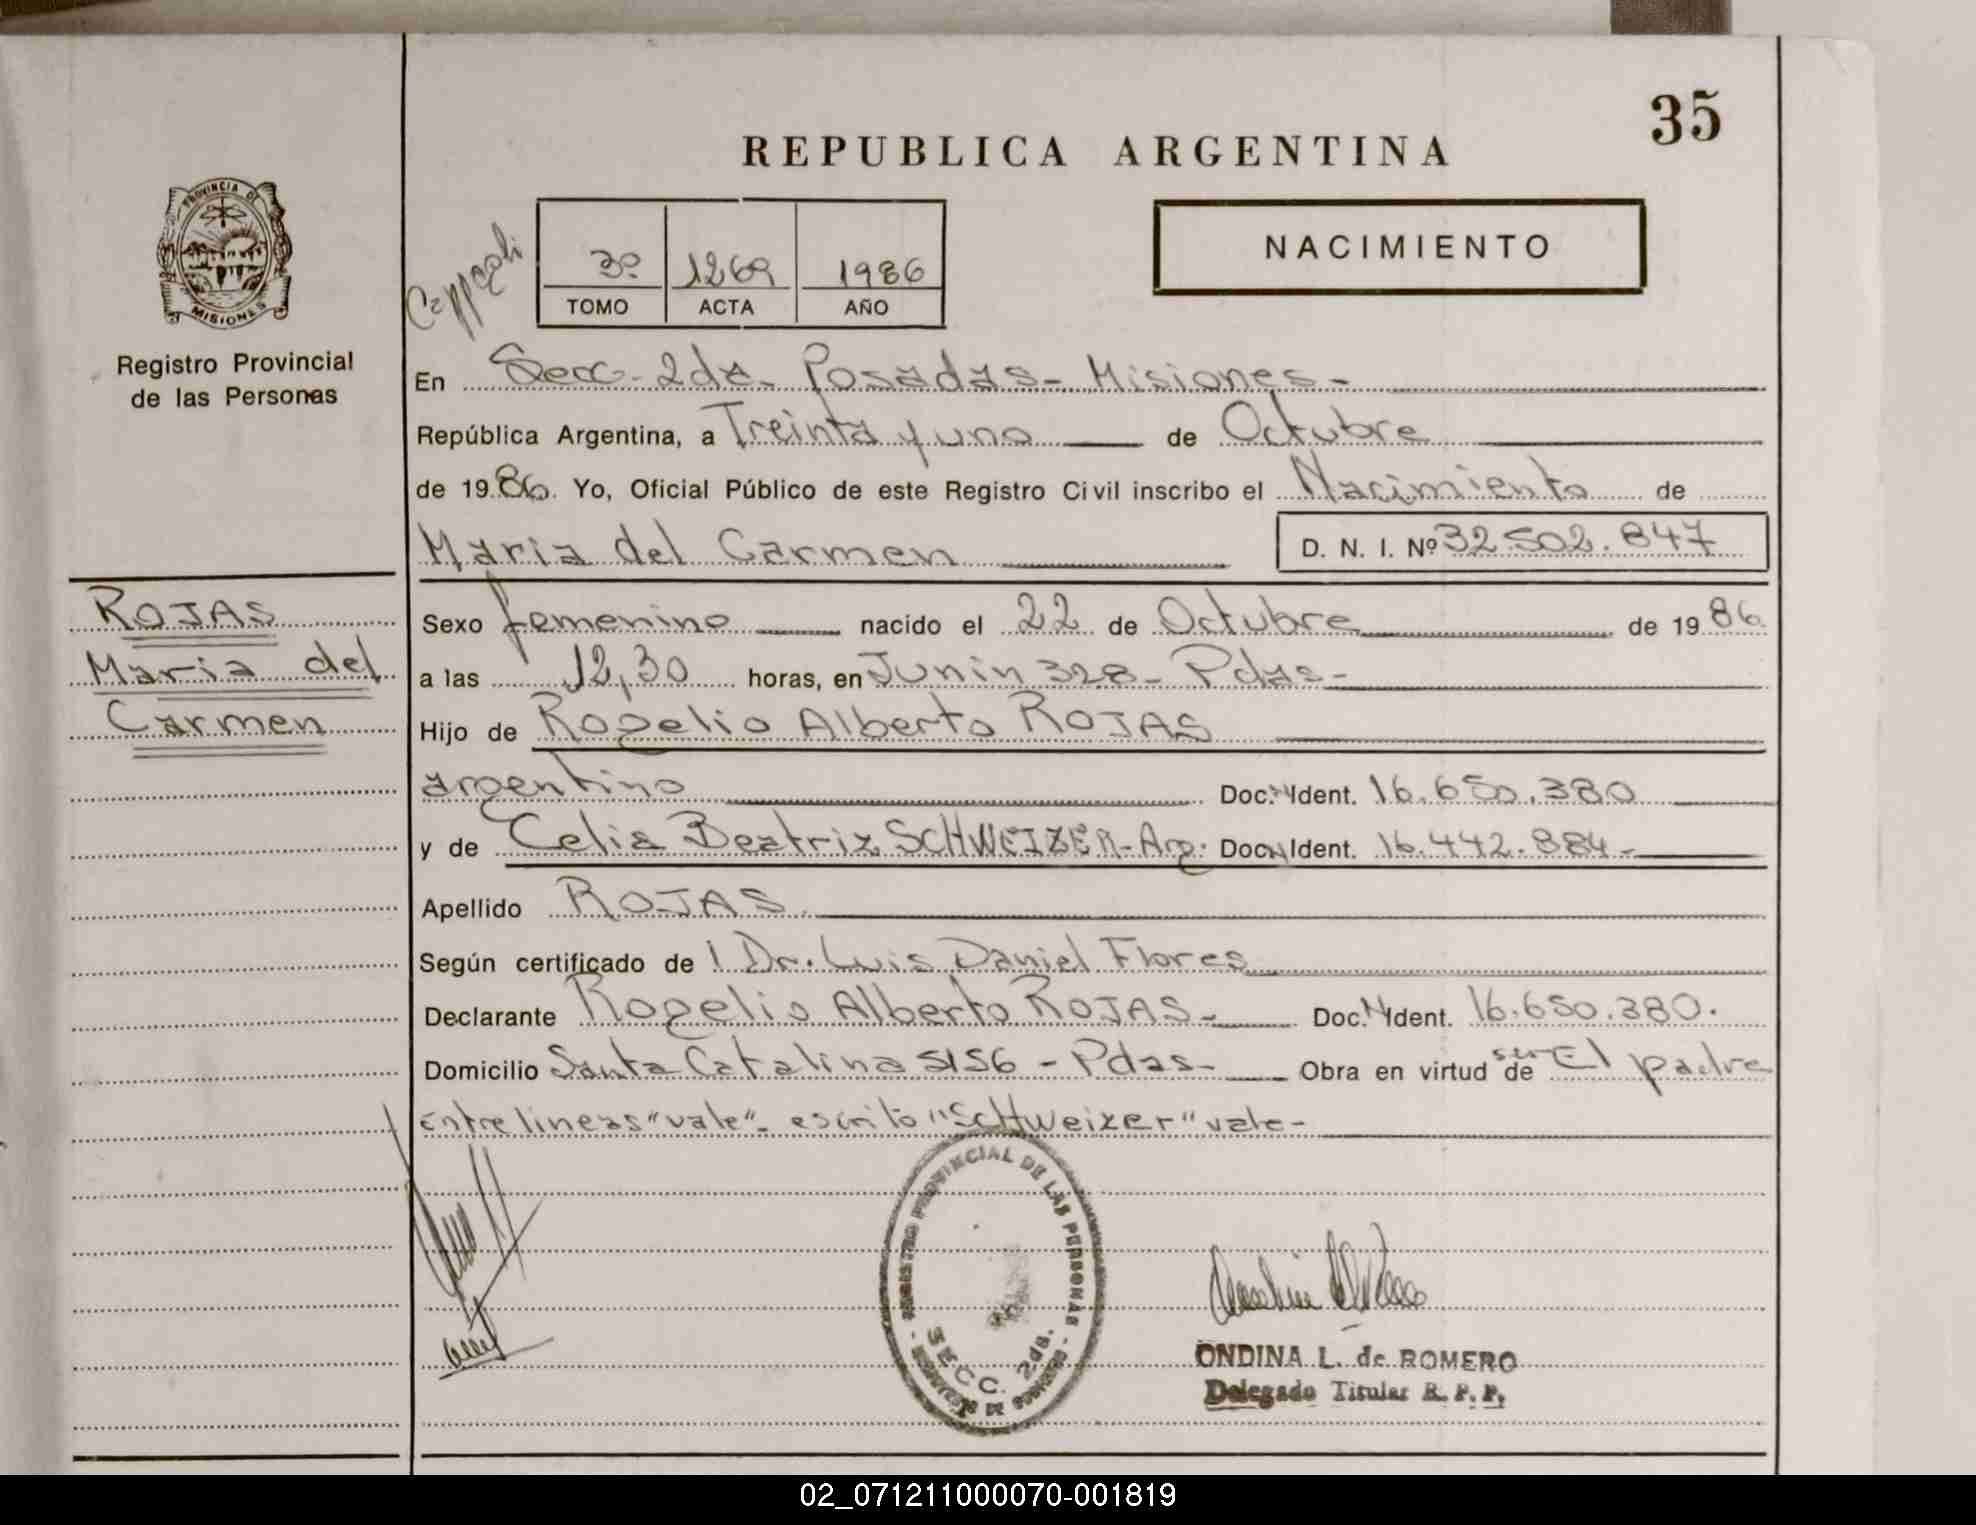 35
REPUBLICA ARGENTINA
PROVINCIA DE
MISIONES
Registro Provincial
de las Personas
3º 1269 1986
TOMO ACTA AÑO
NACIMIENTO
En Secc. 2da. Posadas - Misiones -
República Argentina, a Treinta y uno de Octubre
de 1986. Yo, Oficial Público de este Registro Civil inscribo el Nacimiento de
Maria del Carmen D. N. I. Nº 32.502.847
ROJAS
Maria del
Carmen
Sexo femenino nacido el 22 de Octubre de 1986
a las 12,30 horas, en Junin 328 - Pdas -
Hijo de Rogelio Alberto ROJAS
argentino Doc. N Ident. 16.650.380
y de Celia Beatriz SCHWEIZER - Arg. Doc. N Ident. 16.442.884 -
Apellido ROJAS
Según certificado de l Dr. Luis Daniel Flores
Declarante Rogelio Alberto ROJAS - Doc. N Ident. 16.650.380.
Domicilio Santa Catalina 5156 - Pdas - Obra en virtud de ser El padre
Entre lineas "vale" - escrito "Schweizer" vale -
REGISTRO PROVINCIAL DE LAS PERSONAS
SECC. 2da.
ONDINA L. de ROMERO
Delegado Titular R. P. P.
02_071211000070-001819